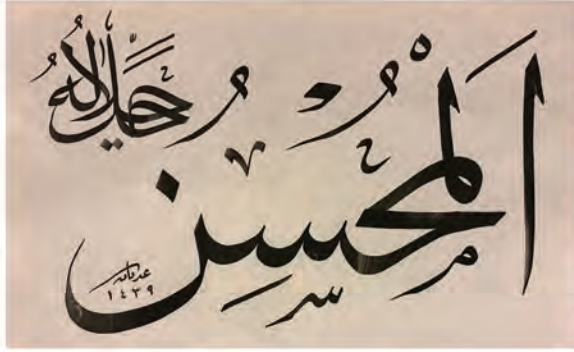 اَلْمُحْسِنُ
جل جلاله
عدنان
١٤٣٩